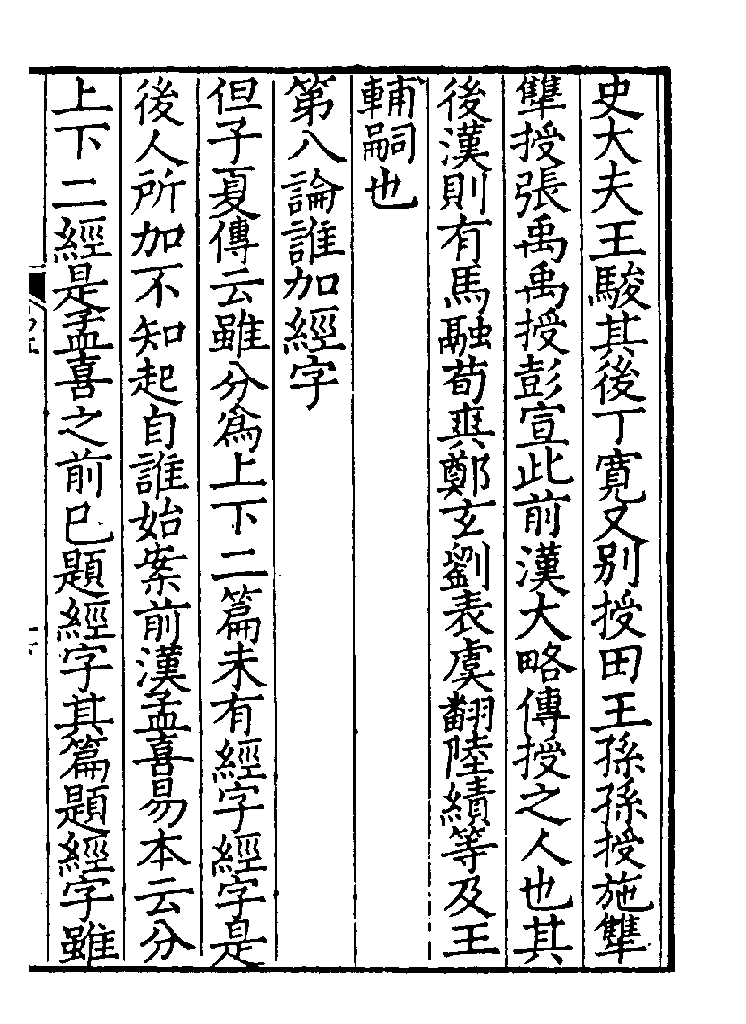 史大夫王駿其後丁寛又别授田王孫孫授施犨
犨授張禹禹授彭宣此前漢大略傳授之人也其
後漢則有馬融荀爽鄭玄劉表虞翻陸績等及王
輔嗣也
第八論誰加經字
但子夏傳云雖分爲上下二篇未有經字經字是
後人所加不知起自誰始案前漢孟喜易本云分
上下二經是孟喜之前已題經字其篇題經字雖